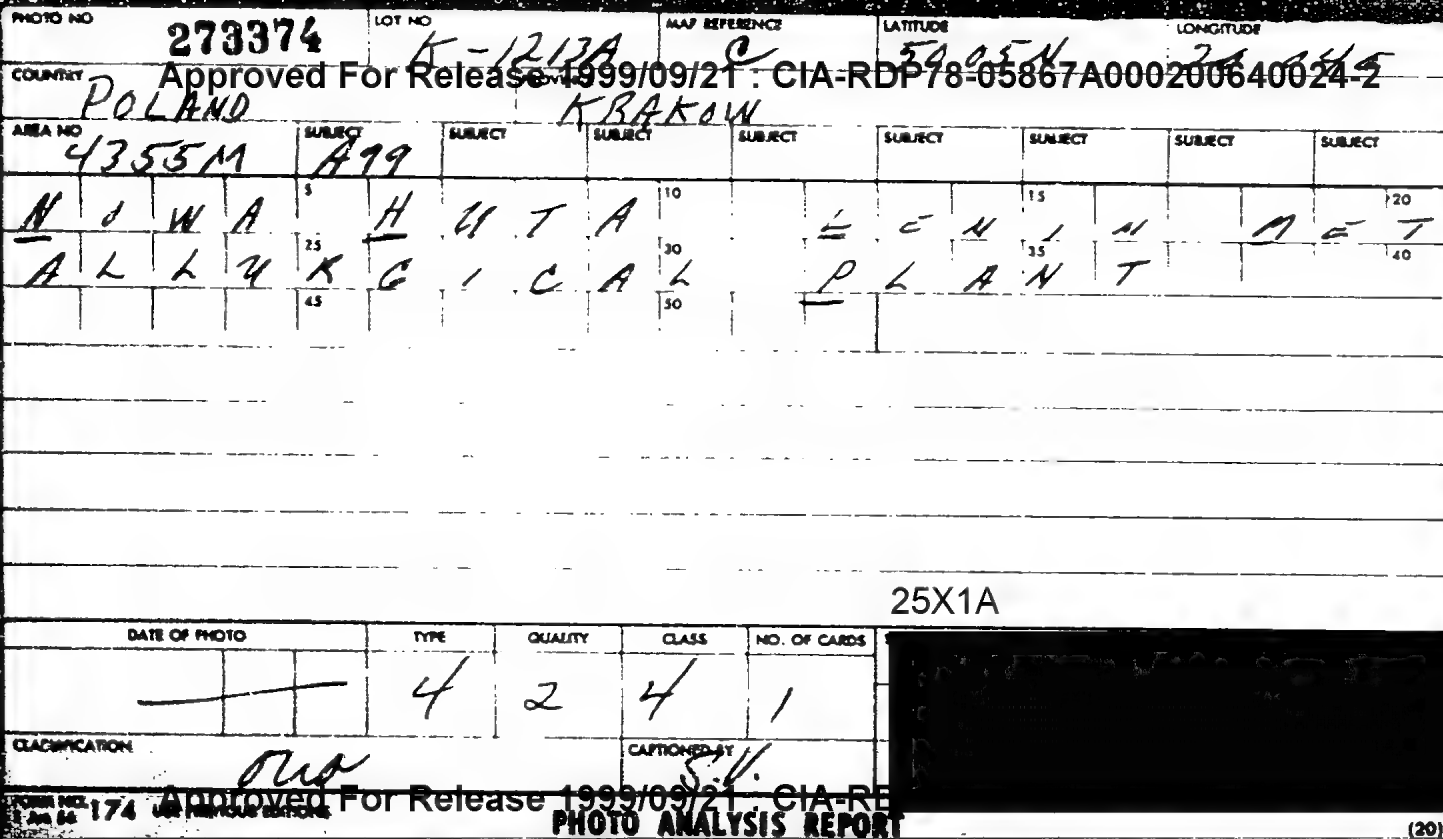 PHOTO NO 273374 LOT NO K-1213A MAP REFERENCE C LATITUDE 50 05N LONGITUDE
Approved For Release 1999/09/21 : CIA-RDP78-05867A000200640024-2
COUNTRY POLAND KRAKOW
AREA NO 4355M SUBJECT A99 SUBJECT SUBJECT SUBJECT SUBJECT SUBJECT SUBJECT SUBJECT
5 10 15 20
NOWA HUTA LENIN MET
25 30 35 40
ALLURGICAL PLANT
45 50
25X1A
DATE OF PHOTO TYPE QUALITY CLASS NO. OF CARDS
4 2 4 1
CLASSIFICATION OUO CAPTIONED BY S.V.
FORM NO. 174 USE PREVIOUS EDITIONS
Approved For Release 1999/09/21 : CIA-RD
PHOTO ANALYSIS REPORT (20)